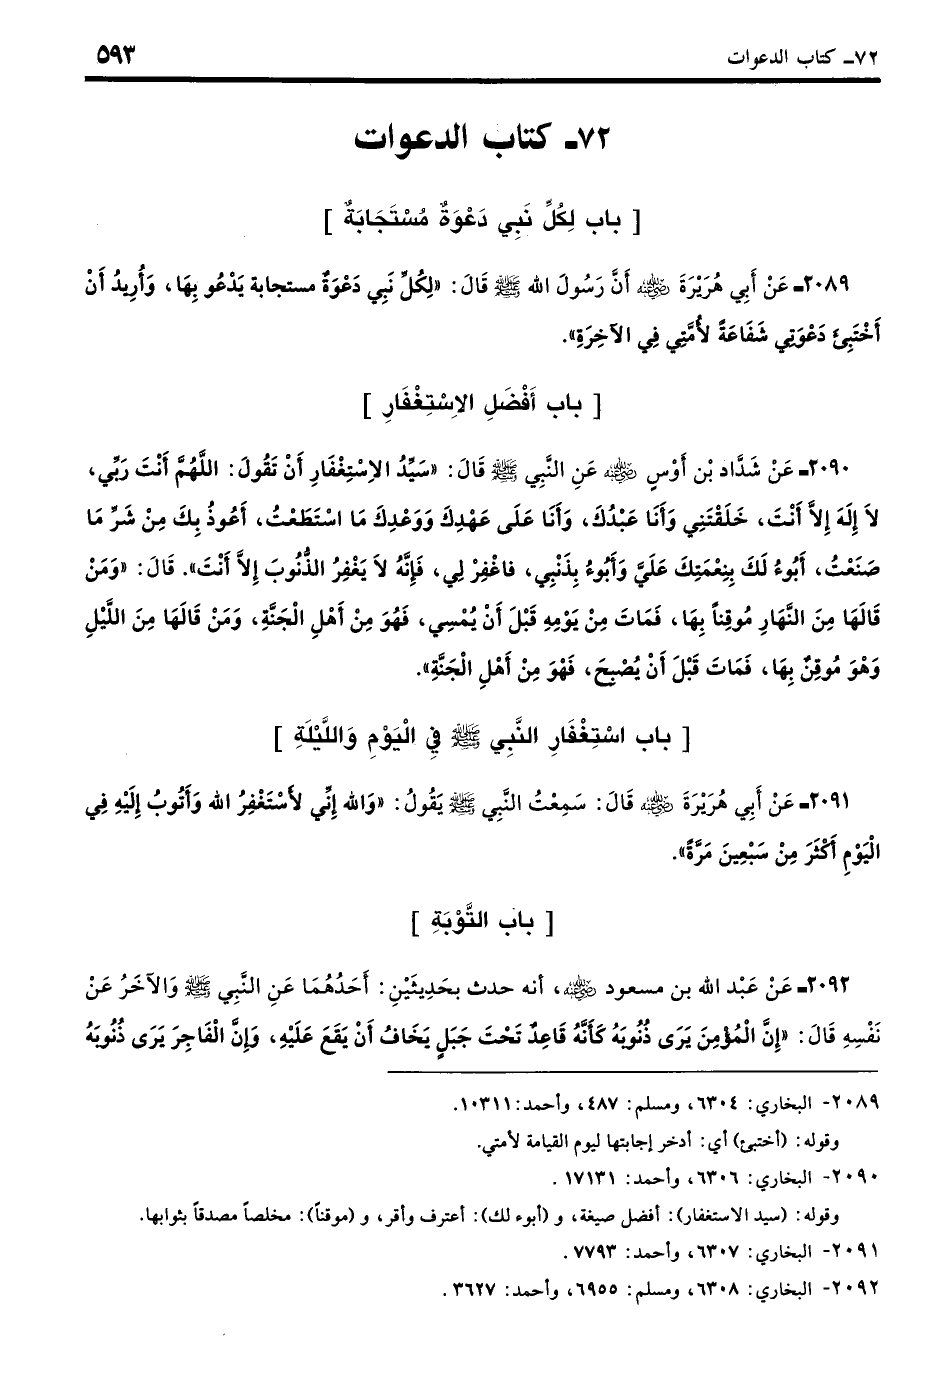 ٧٢ـ كتاب الدعوات
٥٩٣
٧٢ـ كتاب الدعوات
[ باب لِكُلِّ نَبِي دَعْوَةٌ مُسْتَجَابَةٌ ]
٢٠٨٩ـ عَنْ أَبِي هُرَيْرَةَ رضي الله عنه أَنَّ رَسُولَ الله ﷺ قَالَ: «لِكُلِّ نَبِي دَعْوَةٌ مستجابة يَدْعُو بِهَا، وَأُرِيدُ أَنْ
أَخْتَبِئَ دَعْوَتِي شَفَاعَةً لأُمَّتِي فِي الآخِرَةِ».
[ باب أَفْضَلِ الاِسْتِغْفَارِ ]
٢٠٩٠ـ عَنْ شَدَّاد بْن أَوْسٍ رضي الله عنه عَنِ النَّبِي ﷺ قَالَ: «سَيِّدُ الاِسْتِغْفَارِ أَنْ تَقُولَ: اللَّهُمَّ أَنْتَ رَبِّي،
لاَ إِلَهَ إِلاَّ أَنْتَ، خَلَقْتَنِي وَأَنَا عَبْدُكَ، وَأَنَا عَلَى عَهْدِكَ وَوَعْدِكَ مَا اسْتَطَعْتُ، أَعُوذُ بِكَ مِنْ شَرِّ مَا
صَنَعْتُ، أَبُوءُ لَكَ بِنِعْمَتِكَ عَلَيَّ وَأَبُوءُ بِذَنْبِي، فاغْفِرْ لِي، فَإِنَّهُ لاَ يَغْفِرُ الذُّنُوبَ إِلاَّ أَنْتَ». قَالَ: «وَمَنْ
قَالَهَا مِنَ النَّهَارِ مُوقِناً بِهَا، فَمَاتَ مِنْ يَوْمِهِ قَبْلَ أَنْ يُمْسِي، فَهُوَ مِنْ أَهْلِ الْجَنَّةِ، وَمَنْ قَالَهَا مِنَ اللَّيْلِ
وَهْوَ مُوقِنٌ بِهَا، فَمَاتَ قَبْلَ أَنْ يُصْبِحَ، فَهْوَ مِنْ أَهْلِ الْجَنَّةِ».
[ باب اسْتِغْفَارِ النَّبِي ﷺ فِي الْيَوْمِ وَاللَّيْلَةِ ]
٢٠٩١ـ عَنْ أَبِي هُرَيْرَةَ رضي الله عنه قَالَ: سَمِعْتُ النَّبِي ﷺ يَقُولُ: «وَالله إِنِّي لأَسْتَغْفِرُ الله وَأَتُوبُ إِلَيْهِ فِي
الْيَوْمِ أَكْثَرَ مِنْ سَبْعِينَ مَرَّةً».
[ باب التَّوْبَةِ ]
٢٠٩٢ـ عَنْ عَبْد الله بن مسعود رضي الله عنه، أنه حدث بحَدِيثَيْنِ: أَحَدُهُمَا عَنِ النَّبِي ﷺ وَالآخَرُ عَنْ
نَفْسِهِ قَالَ: «إِنَّ الْمُؤْمِنَ يَرَى ذُنُوبَهُ كَأَنَّهُ قَاعِدٌ تَحْتَ جَبَلٍ يَخَافُ أَنْ يَقَعَ عَلَيْهِ، وَإِنَّ الْفَاجِرَ يَرَى ذُنُوبَهُ
٢٠٨٩- البخاري: ٦٣٠٤، ومسلم: ٤٨٧، وأحمد: ١٠٣١١.
وقوله: (أختبئ) أي: أدخر إجابتها ليوم القيامة لأمتي.
٢٠٩٠- البخاري: ٦٣٠٦، وأحمد: ١٧١٣١ .
وقوله: (سيد الاستغفار): أفضل صيغة، و (أبوء لك): أعترف وأقر، و (موقناً): مخلصاً مصدقاً بثوابها.
٢٠٩١- البخاري: ٦٣٠٧، وأحمد: ٧٧٩٣ .
٢٠٩٢- البخاري: ٦٣٠٨، ومسلم: ٦٩٥٥، وأحمد: ٣٦٢٧ .